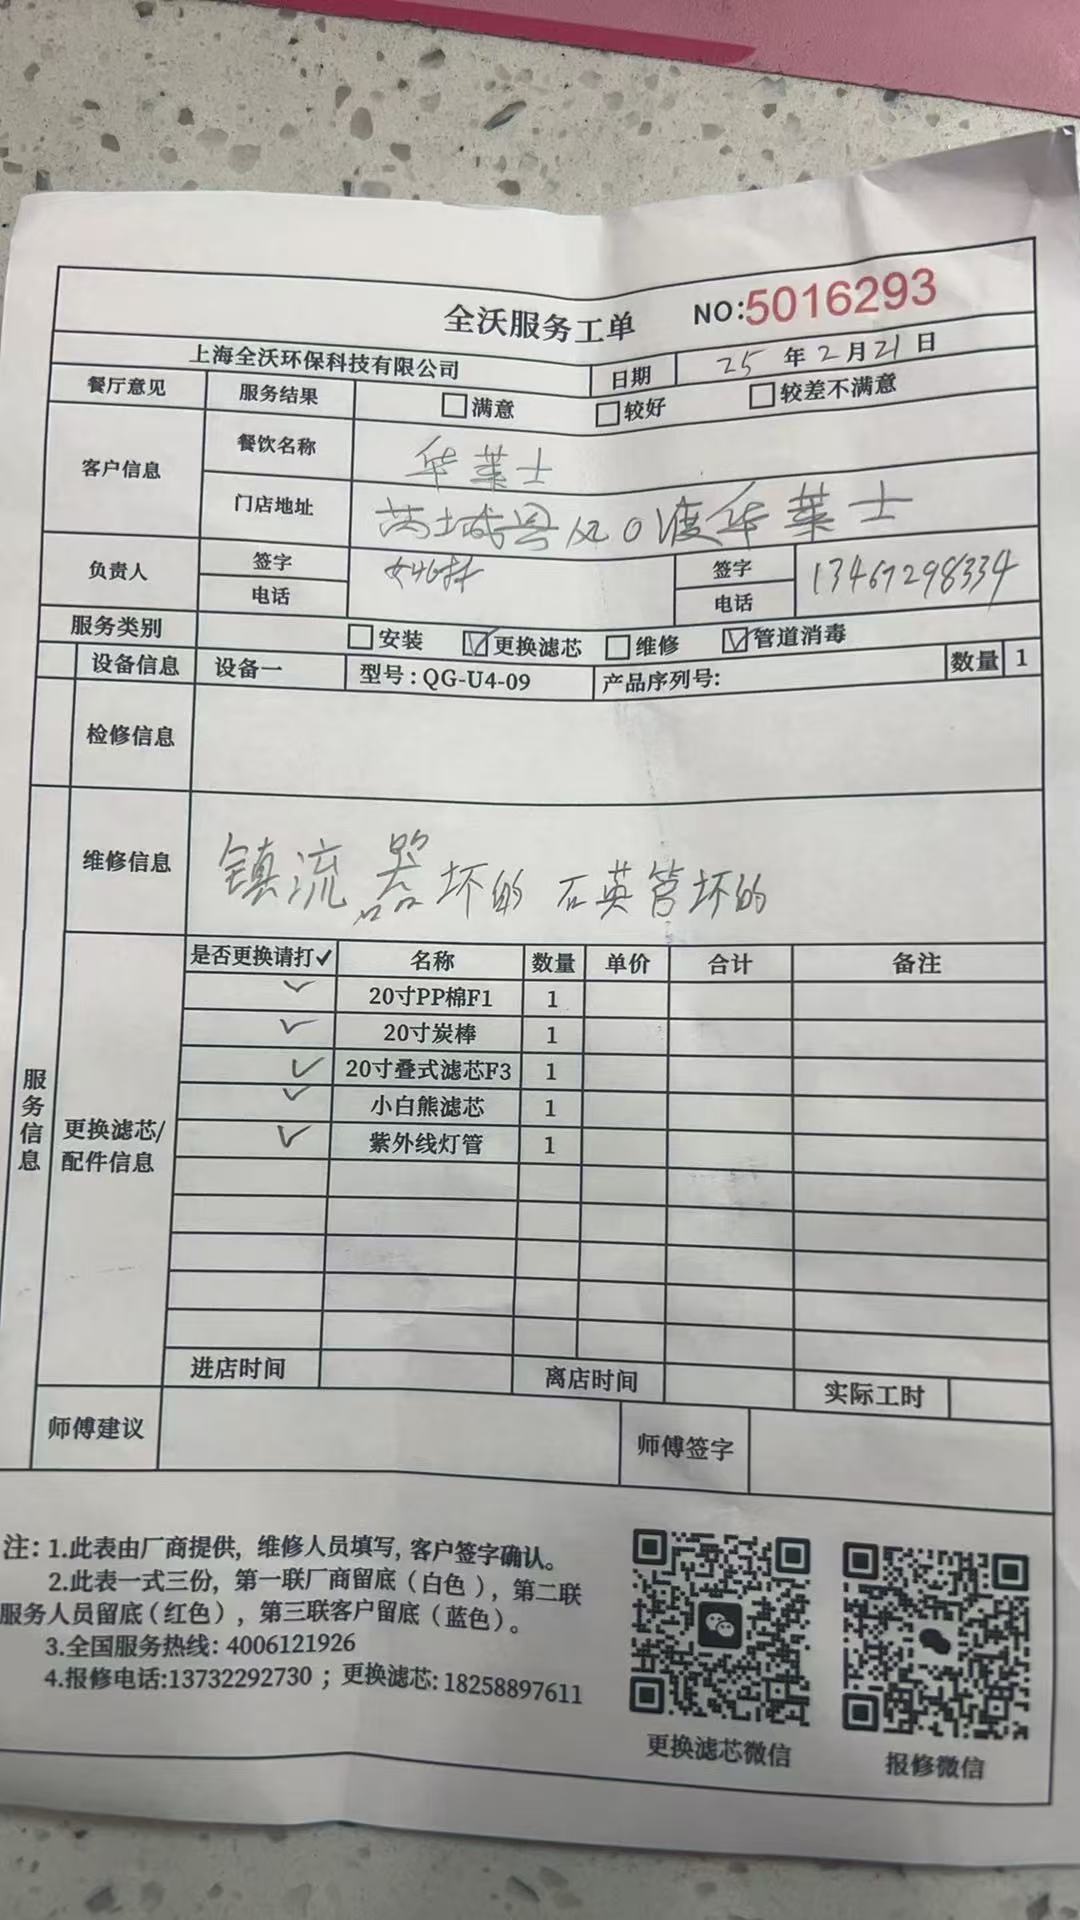 全沃服务工单 NO:5016293
上海全沃环保科技有限公司 日期 25 年 2 月 21 日
餐厅意见 服务结果 满意 较好 较差不满意
客户信息 餐饮名称 华莱士
门店地址 芮城县风口渡华莱士
负责人 签字 签字 13467298334
电话 电话
服务类别 安装 更换滤芯 维修 管道消毒
设备信息 设备一 型号：QG-U4-09 产品序列号： 数量 1
检修信息
维修信息 镇流器坏的 石英管坏的
服务信息
更换滤芯/配件信息
是否更换请打✓ 名称 数量 单价 合计 备注
✓ 20寸PP棉F1 1
✓ 20寸炭棒 1
✓ 20寸叠式滤芯F3 1
✓ 小白熊滤芯 1
✓ 紫外线灯管 1
进店时间 离店时间 实际工时
师傅建议 师傅签字
注：1.此表由厂商提供，维修人员填写，客户签字确认。
2.此表一式三份，第一联厂商留底（白色），第二联
服务人员留底（红色），第三联客户留底（蓝色）。
3.全国服务热线：4006121926
4.报修电话:13732292730；更换滤芯：18258897611
更换滤芯微信 报修微信